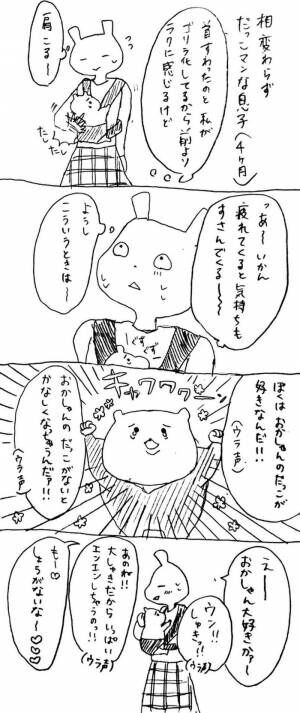 相変わらず
だっこマンな息子(4ヶ月)
首すわったのと私が
ゴリラ化してるから前より
ラクに感じるけど
肩こる〜
だしっ
だしっ
っあ〜いかん
疲れてくると気持ちも
すさんでくる〜〜
ぐずぐず
ようし
こういうときは〜
キャワワワ〜ン
ぼくはおかしゃんのだっこが
好きなんだ!!
(ウラ声)
おかしゃんのだっこがないと
かなしくなっちゃうんだァ!!
(ウラ声)
えー
おかしゃん大好きかァ〜
ウン!!
しゅきっ!!
(ウラ声)
あのね!!
大しゅきだからいっぱい
エンエンしちゃうのっ!!
(ウラ声)
もー♡
しょうがないな〜♡♡♡